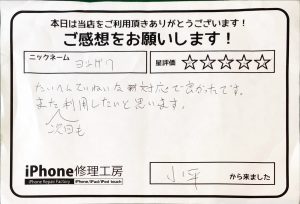 本日は当店をご利用頂きありがとうございます!
ご感想をお願いします!
ニックネーム ヨシカワ
星評価 ☆☆☆☆☆
たいへんていねいな対応で良かったです。
また利用したいと思います。
次回も
iPhone修理工房
iPhone Repair Factory iPhone/iPad/iPod touch
小平 から来ました